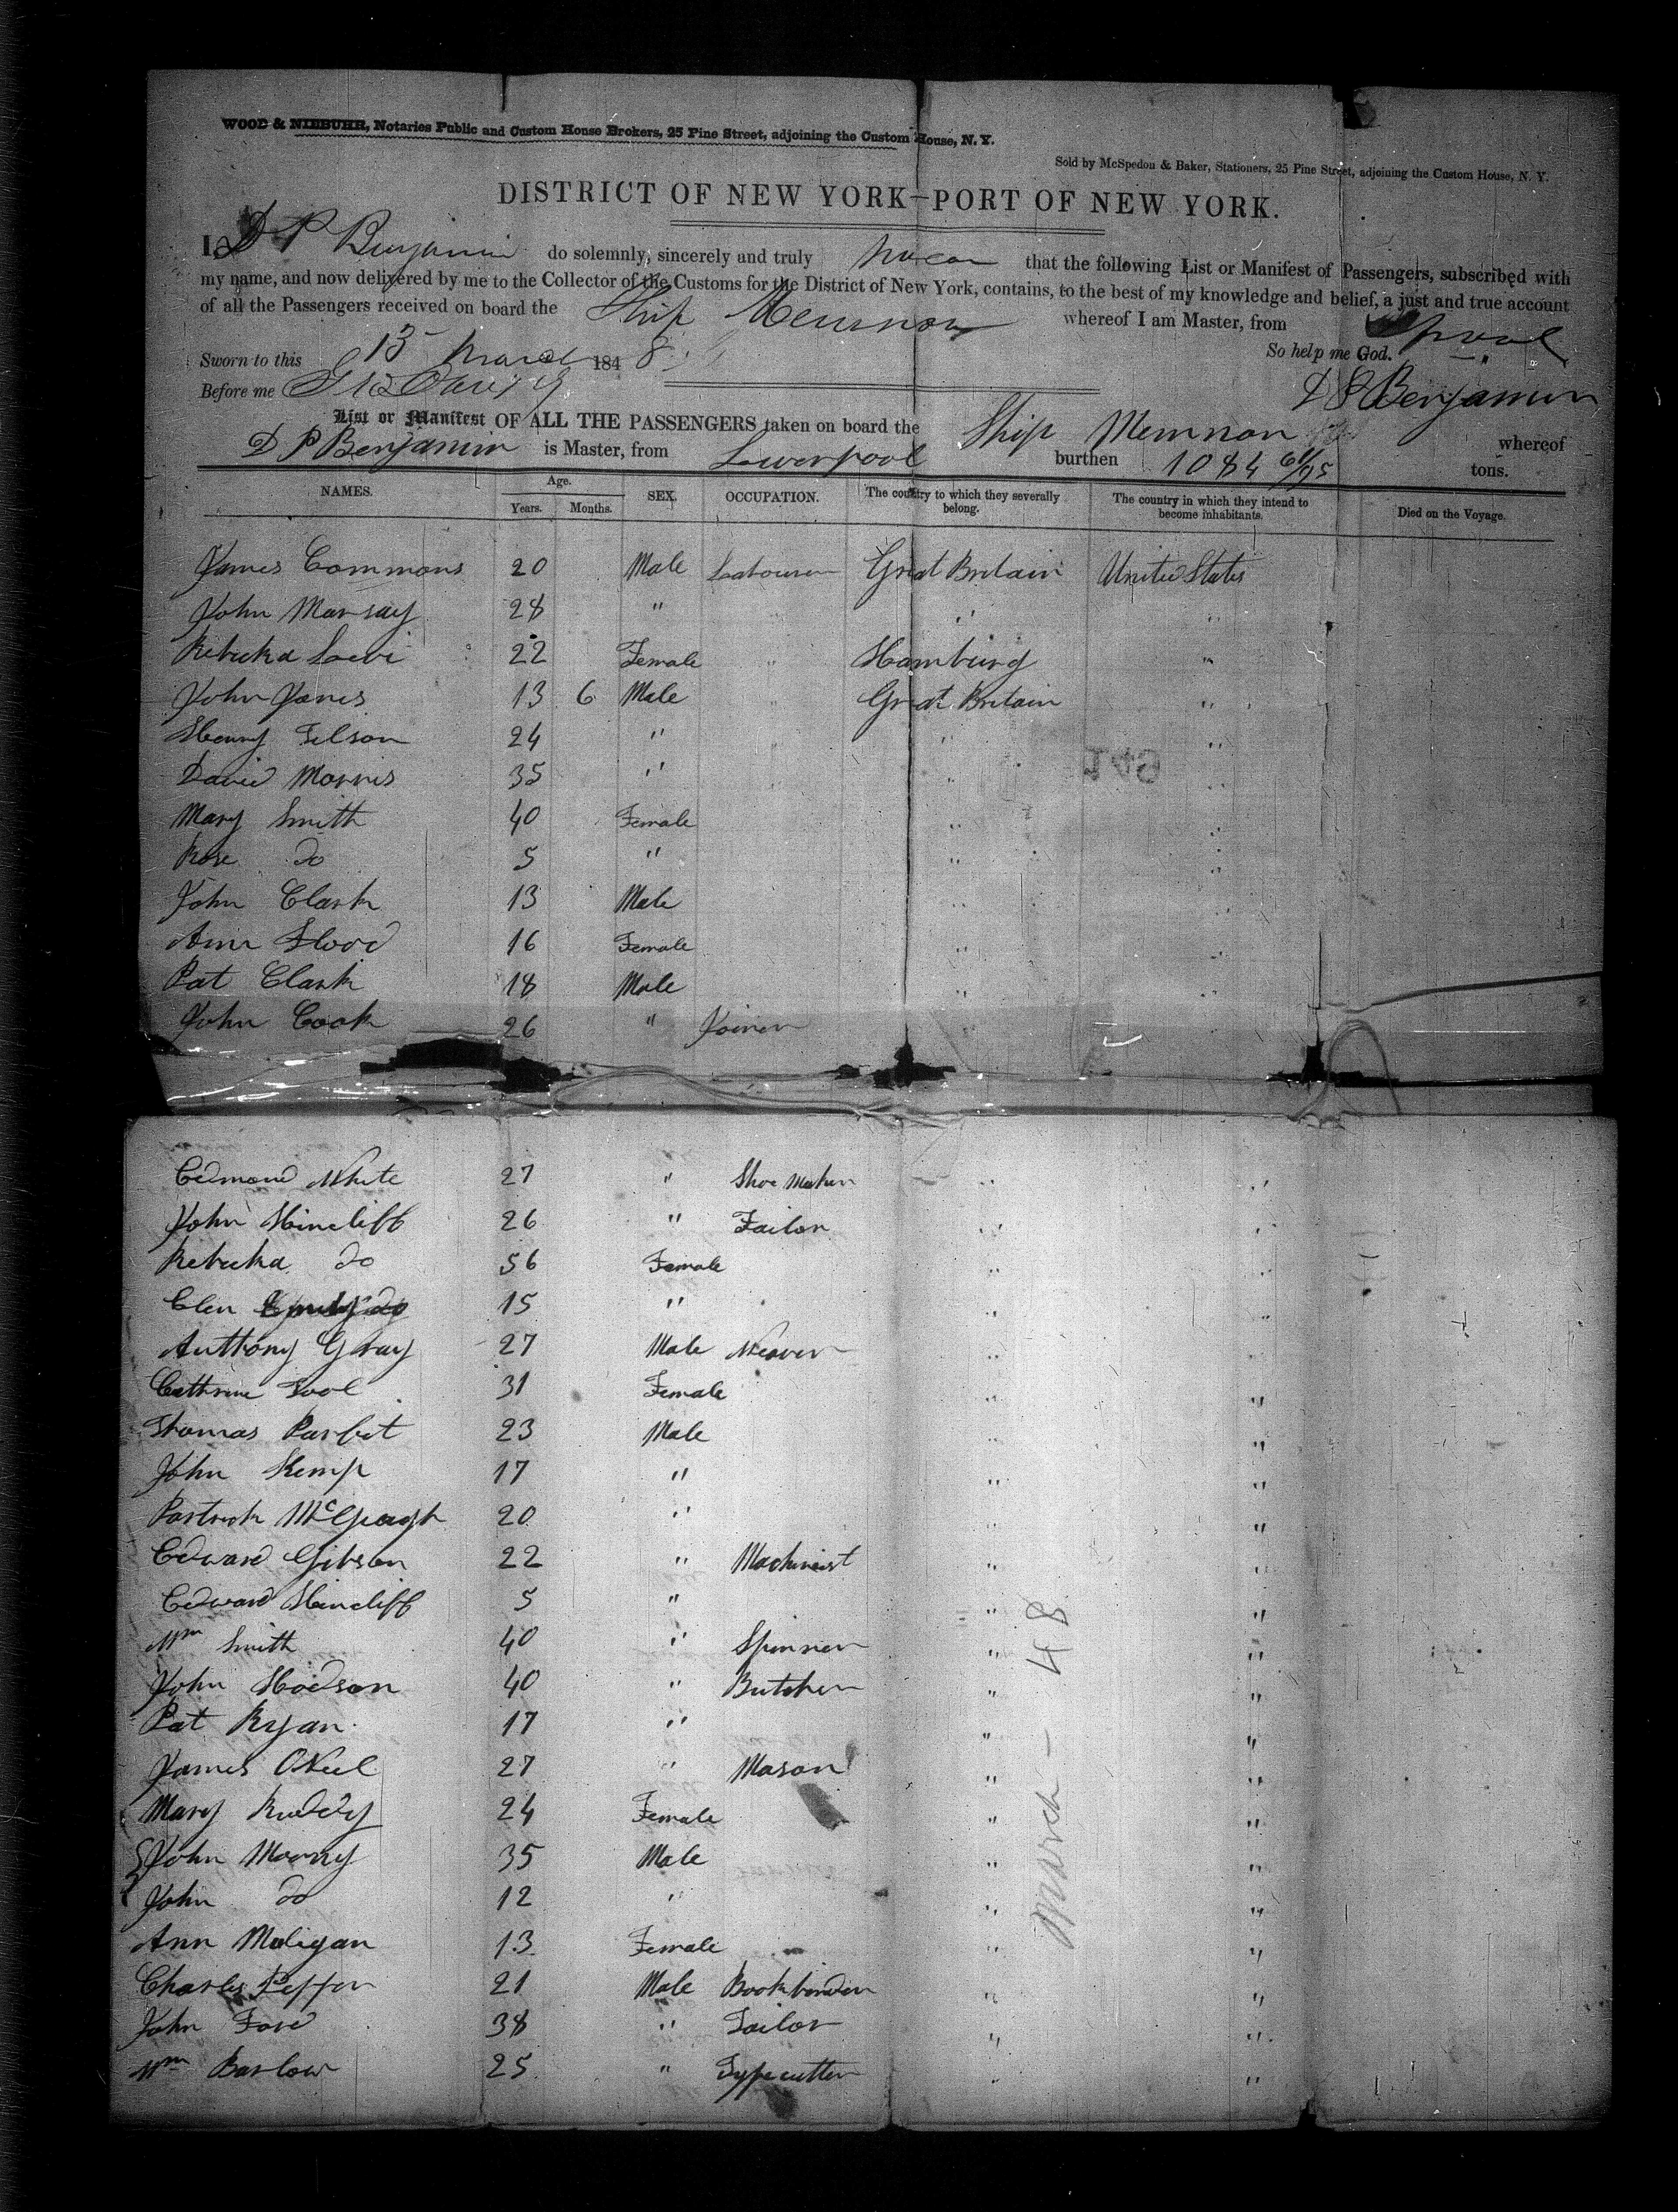 WOOD & NIEBUHR, Notaries Public and Custom House Brokers, 25 Pine Street, adjoining the Custom House, N. Y.
Sold by McSpedon & Baker, Stationers, 25 Pine Street, adjoining the Custom House, N. Y.
DISTRICT OF NEW YORK—PORT OF NEW YORK.
I, D P Benjamin do solemnly, sincerely and truly swear that the following List or Manifest of Passengers, subscribed with
my name, and now delivered by me to the Collector of the Customs for the District of New York, contains, to the best of my knowledge and belief, a just and true account
of all the Passengers received on board the Ship Memnon whereof I am Master, from pool
Sworn to this 13 March 1848 So help me God.
Before me D P Benjamin
List or Manifest OF ALL THE PASSENGERS taken on board the Ship Memnon whereof
D P Benjamin is Master, from Liverpool burthen 1084 61/95 tons.
NAMES. Age. Years. Months. SEX. OCCUPATION. The country to which they severally belong. The country in which they intend to become inhabitants. Died on the Voyage.
James Commons 20 Male Labourer Great Britain United States
John Marsay 28 " " "
Rebecka Levi 22 Female " Hamburg "
John Jones 13 6 Male " Great Britain "
Henry Filson 24 " " "
David Morris 35 " " "
Mary Smith 40 Female " "
Rose do 5 " " "
John Clark 13 Male " "
Ann Flood 16 Female " "
Pat Clark 18 Male " "
John Cook 26 " Joiner
Edmond White 27 " Shoe Maker " "
John Hincliff 26 " Tailor " "
Rebecka do 56 Female " "
Elen 15 " " "
Anthony Gray 27 Male Weaver " "
Cathrine Tool 31 Female " "
Thomas Parbit 23 Male " "
John Kemp 17 " " "
Partrick McGeagh 20 " " "
Edward Gibson 22 " Machinist " "
Edward Hincliff 5 " " "
Wm Smith 40 " Spinner " "
John Hodson 40 " Butcher " "
Pat Ryan 17 " " "
James ONeel 27 " Mason " "
Mary Ruddy 24 Female " "
John Moorny 35 Male " "
John do 12 " " "
Ann Muligan 13 Female " "
Charles Peffer 21 Male Bookbinder " "
John Ford 38 " Tailor " "
Wm Barlow 25 " Typecutter " "
March - 48